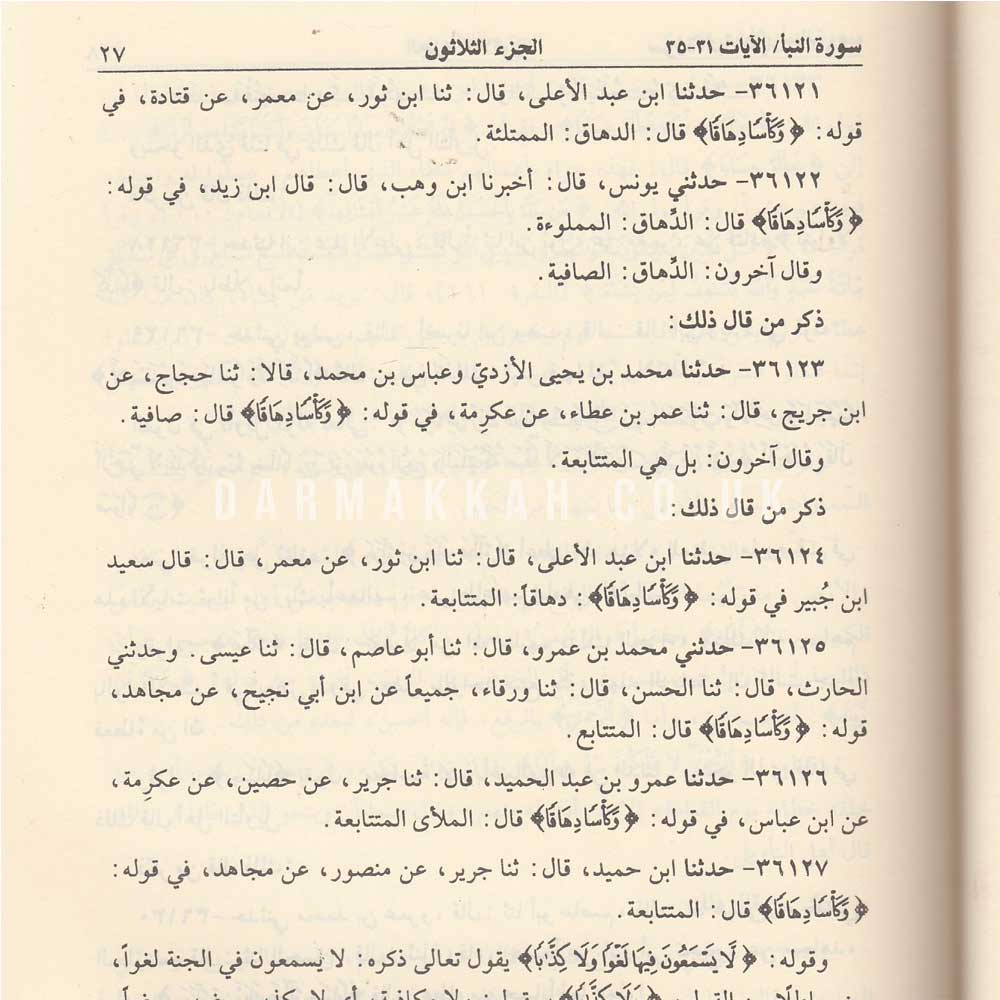 سورة النبأ/ الآيات ٣١-٣٥ الجزء الثلاثون ٢٧
٣٦١٢١- حدثنا ابن عبد الأعلى، قال: ثنا ابن ثور، عن معمر، عن قتادة، في
قوله: ﴿وَكَأْسًا دِهَاقًا﴾ قال: الدهاق: الممتلئة.
٣٦١٢٢- حدثني يونس، قال: أخبرنا ابن وهب، قال: قال ابن زيد، في قوله:
﴿وَكَأْسًا دِهَاقًا﴾ قال: الدِّهاق: المملوءة.
وقال آخرون: الدِّهاق: الصافية.
ذكر من قال ذلك:
٣٦١٢٣- حدثنا محمد بن يحيى الأزديّ وعباس بن محمد، قالا: ثنا حجاج، عن
ابن جريج، قال: ثنا عمر بن عطاء، عن عكرِمة، في قوله: ﴿وَكَأْسًا دِهَاقًا﴾ قال: صافية.
وقال آخرون: بل هي المتتابعة.
DARMAKKAH.CO.UK
ذكر من قال ذلك:
٣٦١٢٤- حدثنا ابن عبد الأعلى، قال: ثنا ابن ثور، عن معمر، قال: قال سعيد
ابن جُبير في قوله: ﴿وَكَأْسًا دِهَاقًا﴾: دهاقاً: المتتابعة.
٣٦١٢٥- حدثني محمد بن عمرو، قال: ثنا أبو عاصم، قال: ثنا عيسى. وحدثني
الحارث، قال: ثنا الحسن، قال: ثنا ورقاء، جميعاً عن ابن أبي نجيح، عن مجاهد،
قوله: ﴿وَكَأْسًا دِهَاقًا﴾ قال: المتتابع.
٣٦١٢٦- حدثنا عمرو بن عبد الحميد، قال: ثنا جرير، عن حصين، عن عكرِمة،
عن ابن عباس، في قوله: ﴿وَكَأْسًا دِهَاقًا﴾ قال: الملأى المتتابعة.
٣٦١٢٧- حدثنا ابن حميد، قال: ثنا جرير، عن منصور، عن مجاهد، في قوله:
﴿وَكَأْسًا دِهَاقًا﴾ قال: المتتابعة.
وقوله: ﴿لَّا يَسْمَعُونَ فِيهَا لَغْوًا وَلَا كِذَّٰبًا﴾ يقول تعالى ذكره: لا يسمعون في الجنة لغواً،